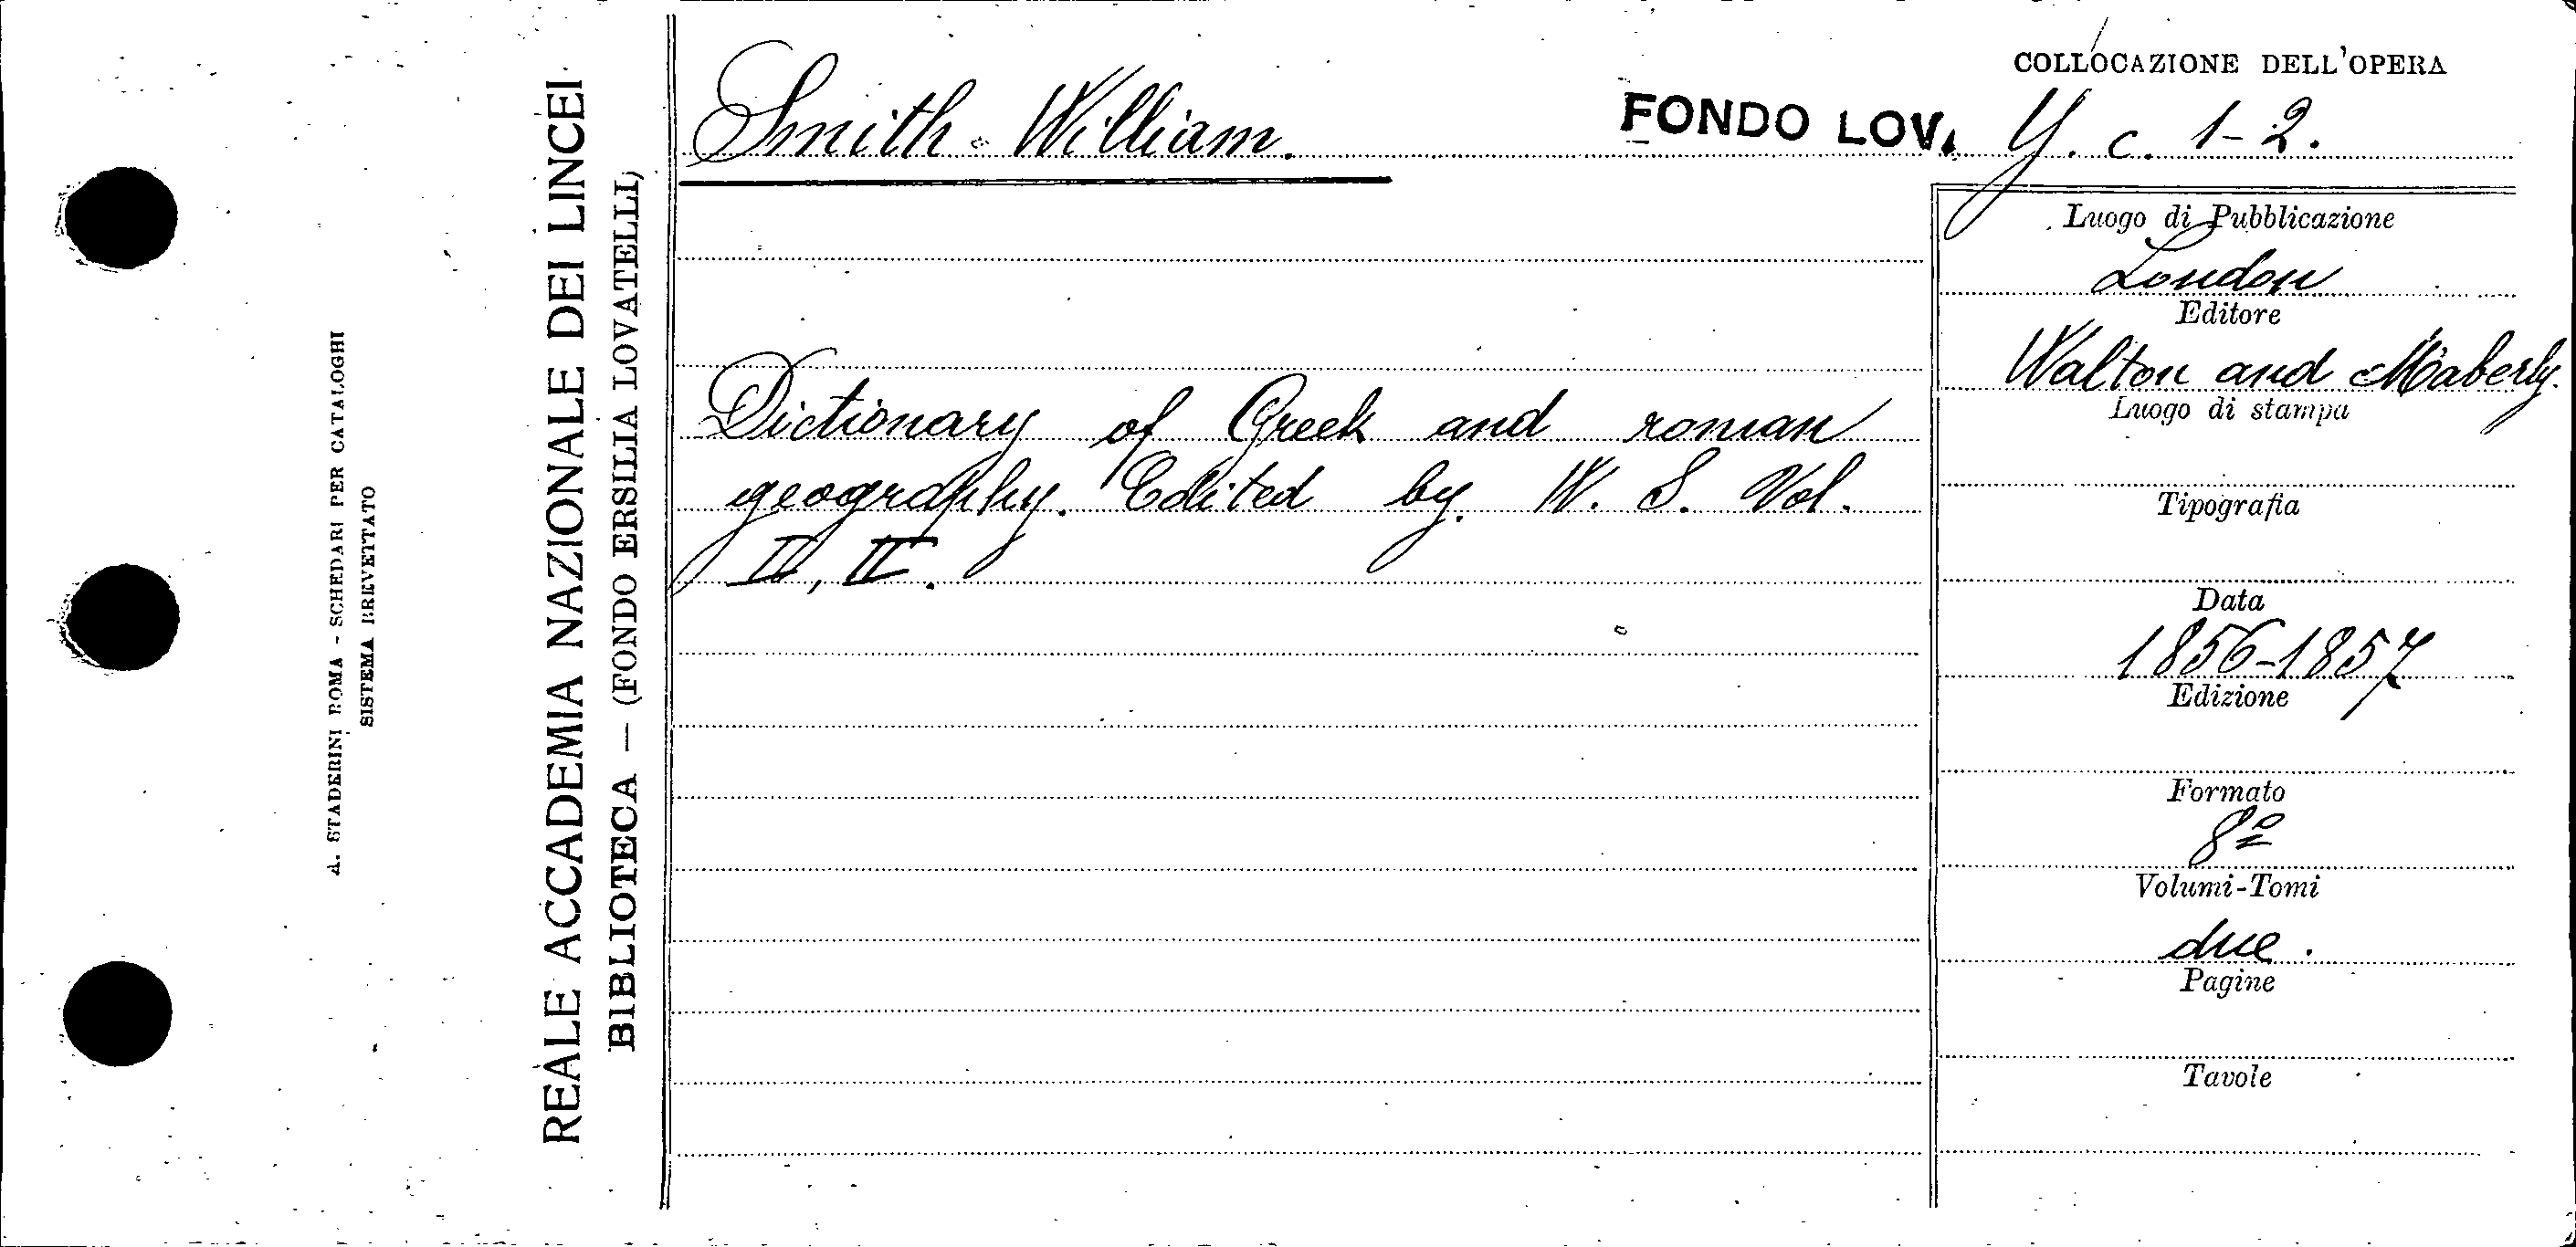 COLLOCAZIONE DELL'OPERA
Smith - William.
FONDO LOV. Y. c. 1-2.
Dictionary of Greek and roman
geography. Edited by W. S. Vol.
II, II.
Luogo di Pubblicazione
London
Editore
Walton and Maberly.
Luogo di stampa
Tipografia
Data
1856-1857
Edizione
Formato
8º
Volumi-Tomi
due.
Pagine
Tavole
REALE ACCADEMIA NAZIONALE DEI LINCEI
BIBLIOTECA — (FONDO ERSILIA LOVATELLI)
A. STADERINI ROMA - SCHEDARI PER CATALOGHI
SISTEMA BREVETTATO